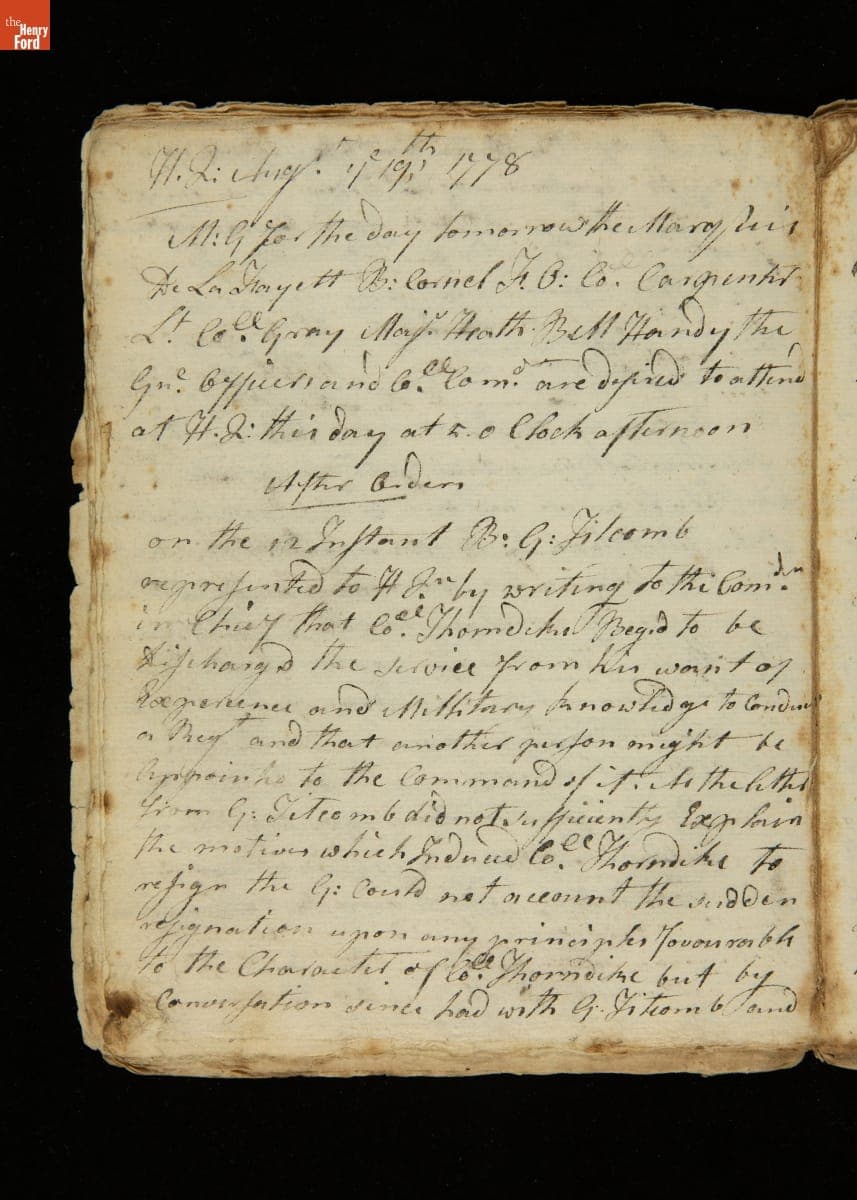 the
Henry
Ford
H. Q: Augst. ye 19th 1778
M: G for the day tomorrow the Marquis
De La Fayett B: Cornel F. O: Co. Carpenter
Lt. Coll. Gray Majr. Heath Bell Handy the
Gnl. Officers and Coll. Comd. are desired to attend
at H. Q: this day at 5. o Clock afternoon
After Orders
on the 12 Instant B: G: Titcomb
represented to H Qrs by writing to the Comdr.
in Chief that Coll. Thorndike Begd to be
Dischargd the service from his want of
Experience and Millitary knowledge to Conduct
a Regt and that another person might be
Appointed to the Command of it. As the letter
from G: Titcomb did not sufficiently Explain
the motives which Induced Coll. Thorndike to
resign the G: Could not account the sudden
resignation upon any principles favourable
to the Character of Coll. Thorndike but by
Conversation since had with G. Titcomb and